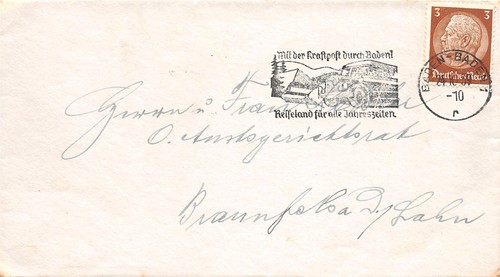 Mit der Kraftpost durch Baden!
Reiseland für alle Jahreszeiten
3 3
Deutsches Reich
BADEN-BADEN 1
-10
r
Herrn u. Frau
O. Amtsgerichtsrat
Braunfels a. D./Lahn